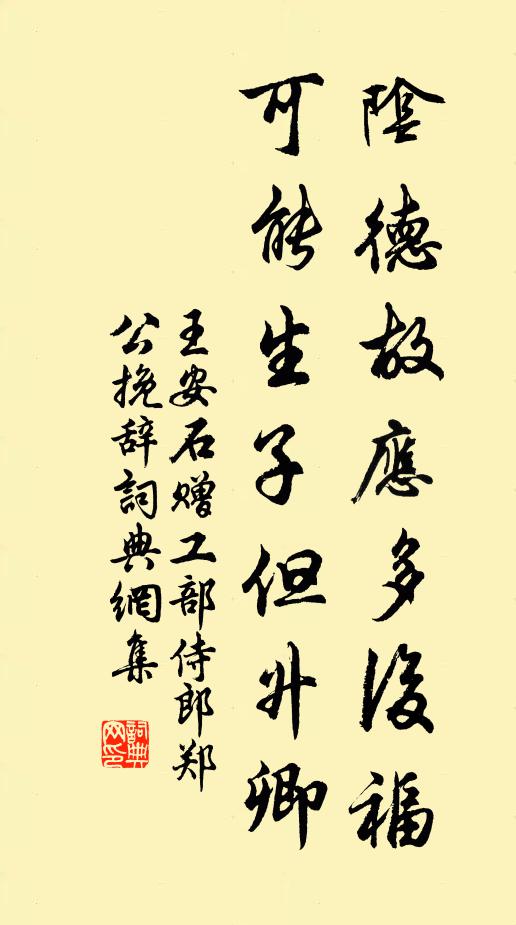 陰德故應多後福
可能生子但升卿
王安石赠工部侍郎郑
公挽辞詞典網集
詞典
网印